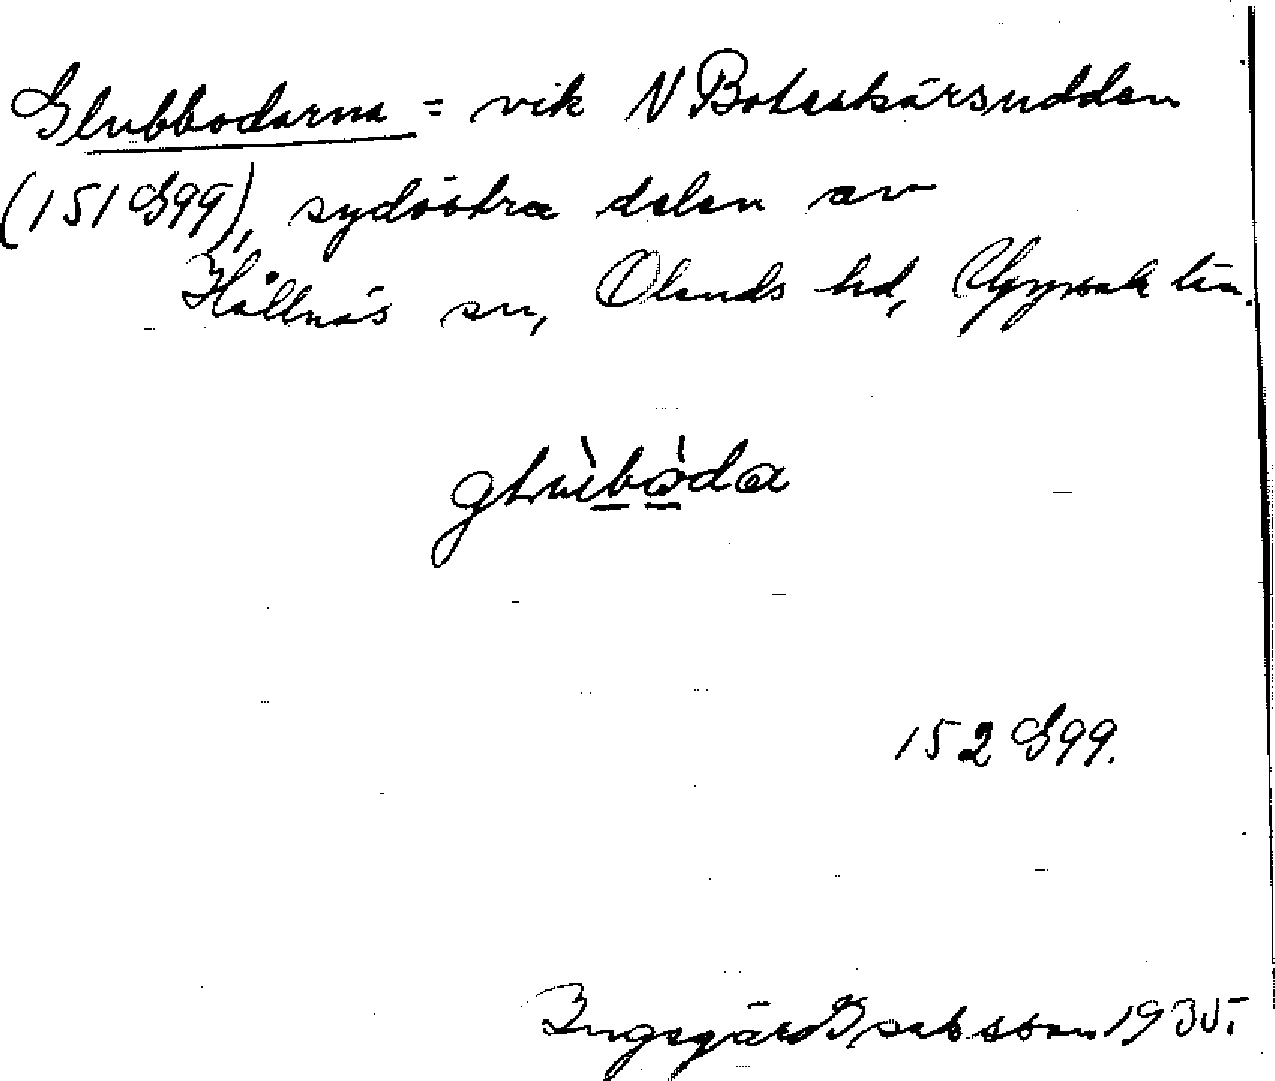 Glubbodarna = vik N Boteskärsudden
(151 G99), sydöstra delen av
Hållnäs sn, Olands hd, Uppsala län.
152 G99.
Ingegärd Isaksson 1935.